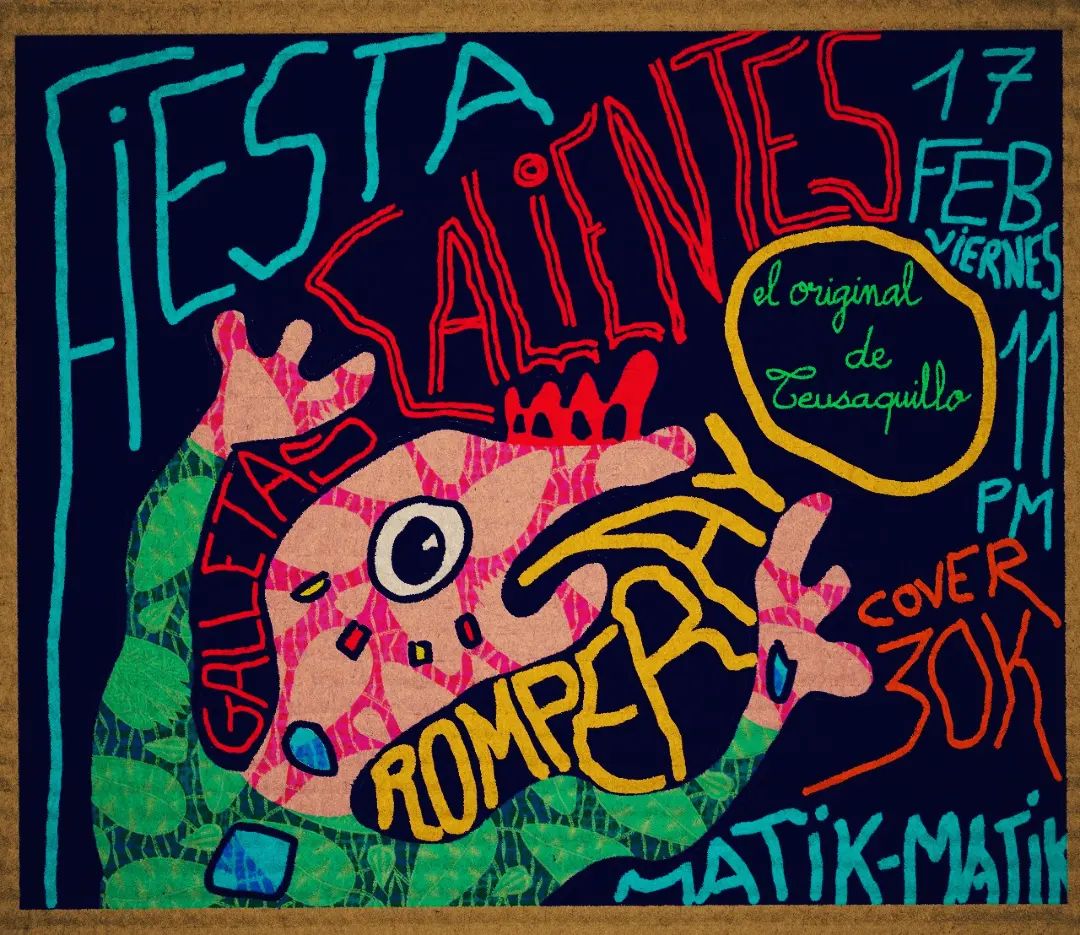 FiESTA
GALLETAS
CALiENTES
ROMPERAYO
el original
de
Teusaquillo
17
FEB
ViERNES
11
PM
COVER
30K
MATiK-MATiK